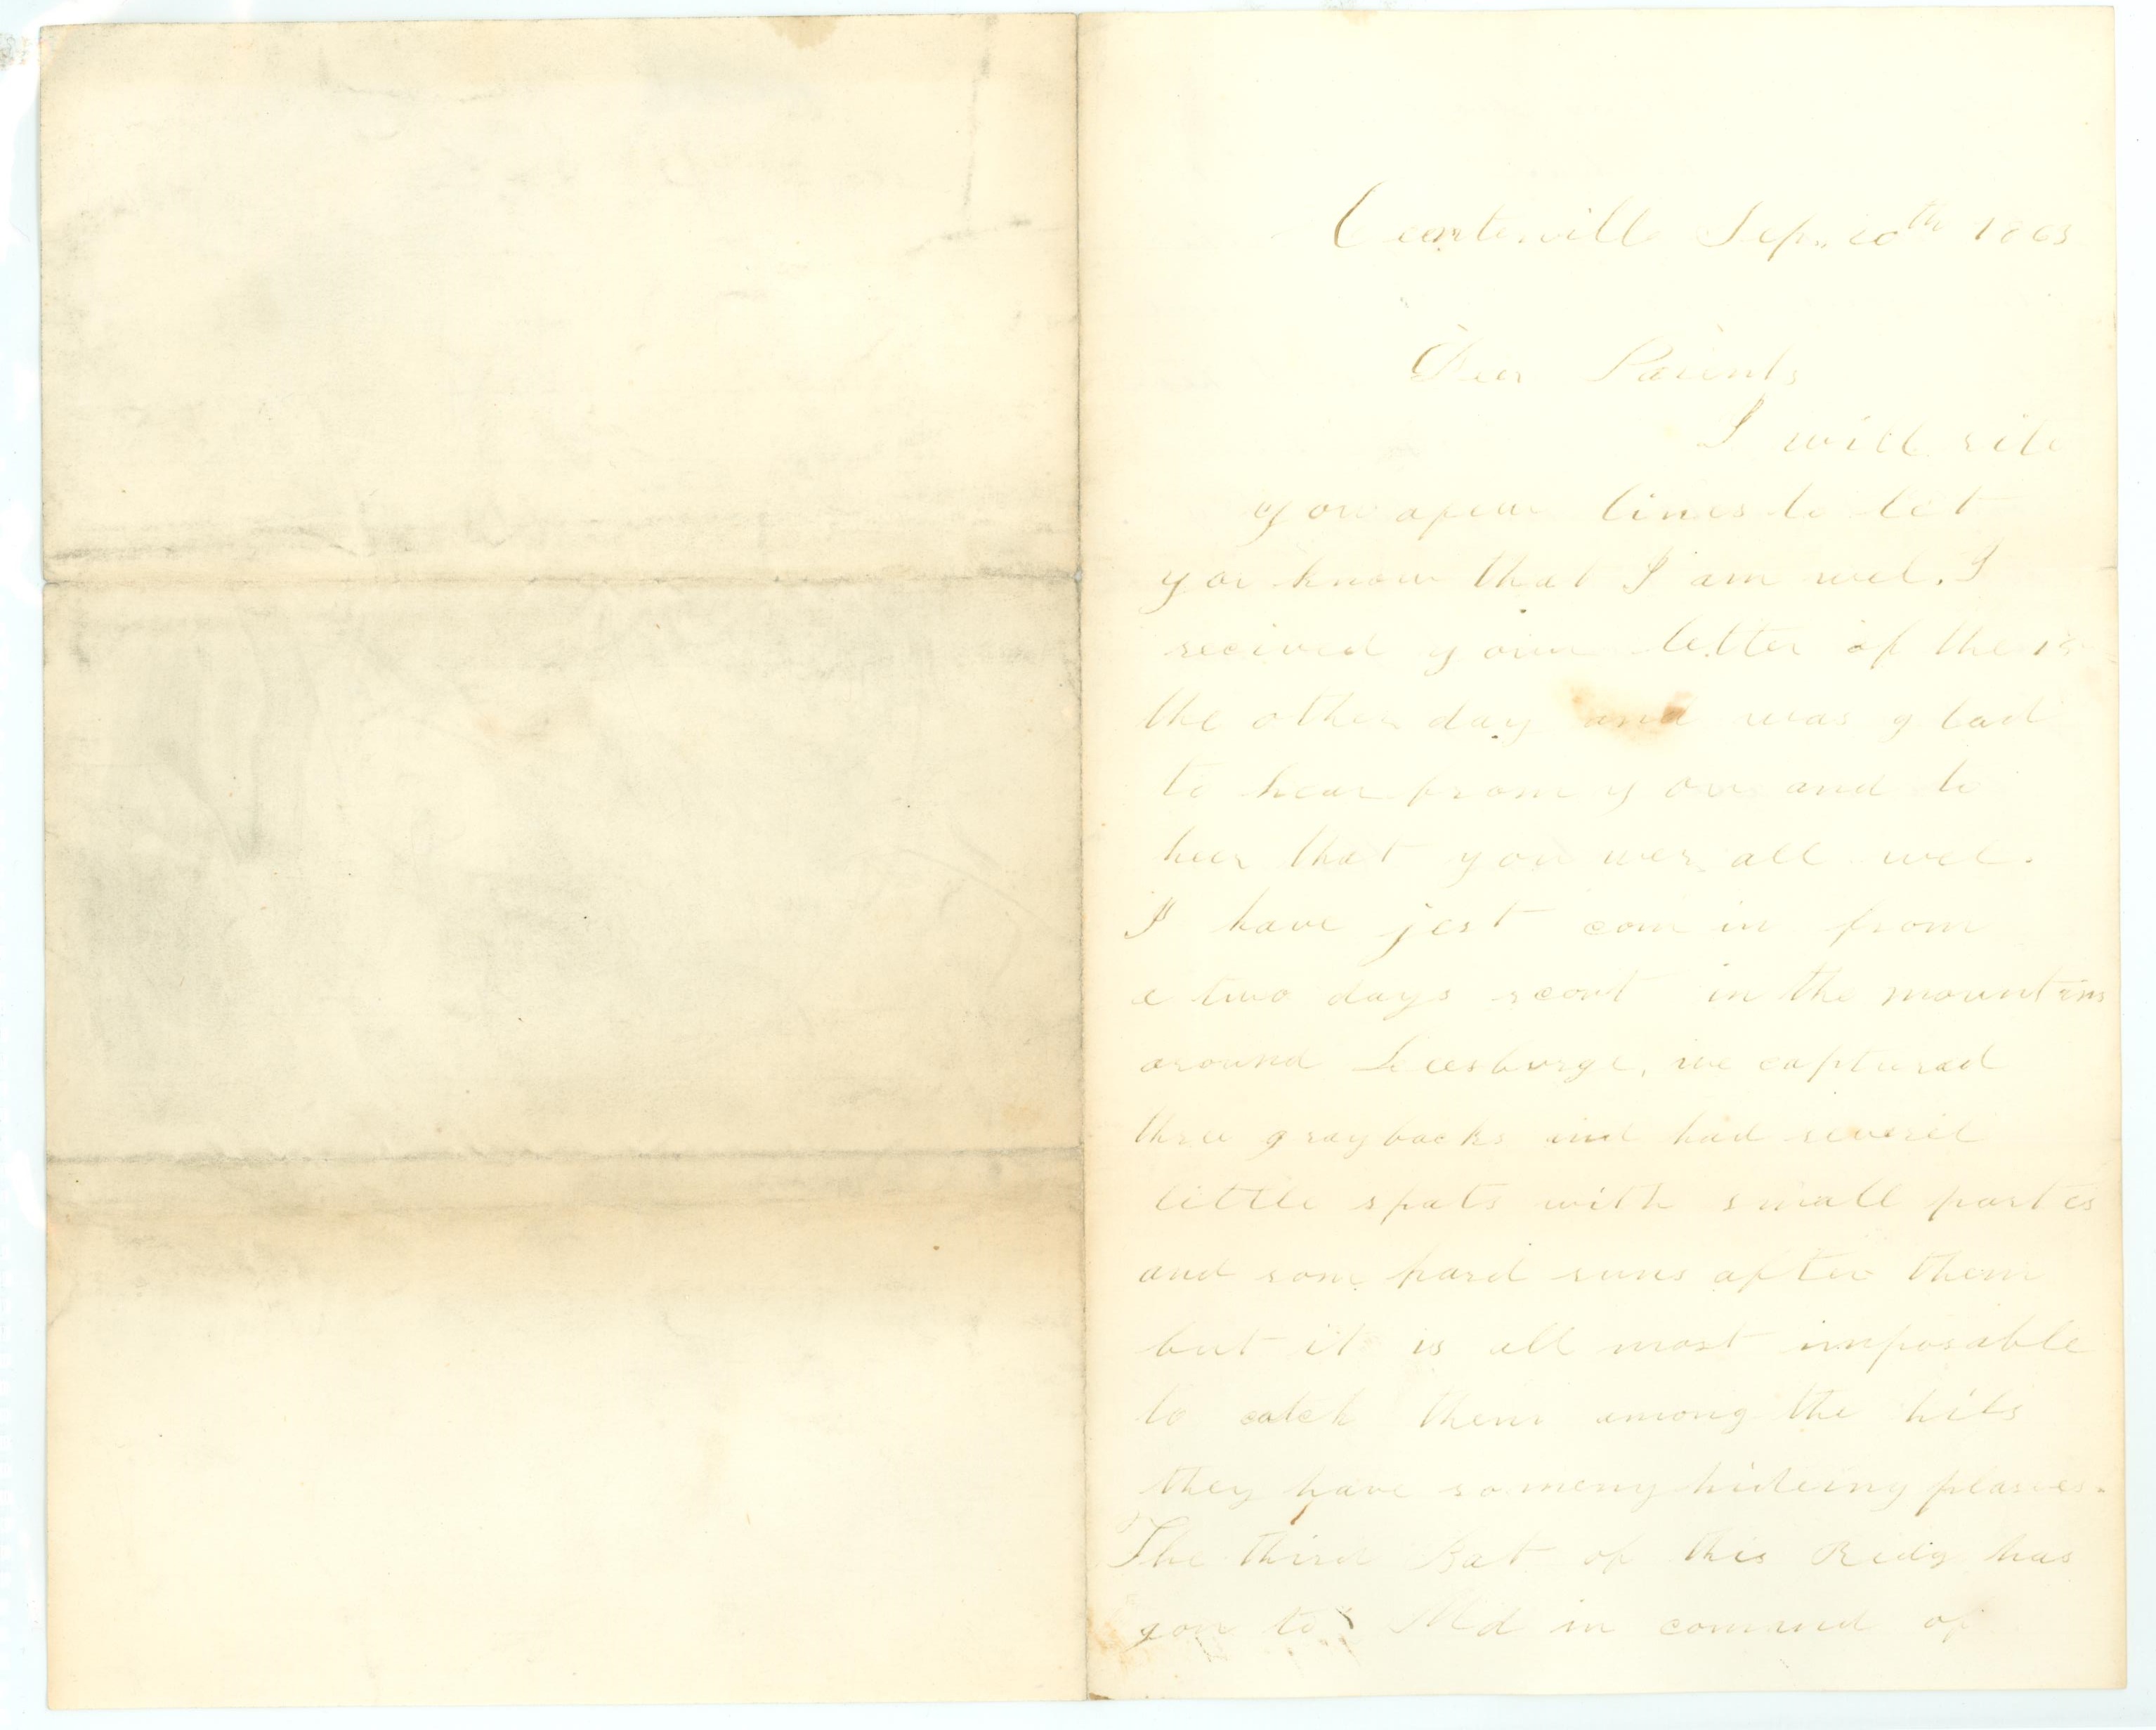 Centervill Sep. 20th 1863
Dear Parents
I will rite
you afew lines to let
you know that I am wel. I
recived your letter of the 13
the other day and was glad
to hear from you and to
heer that you wer all wel.
I have jest com in from
a two days scout in the mountins
around Leesburge, we captured
three graybacks and had severel
little spats with small partes
and som hard runs after them
but it is all most imposable
to catch them among the hils
they have so meny hideing plases.
The third Bat of this Reig has
gon to Md in commd of